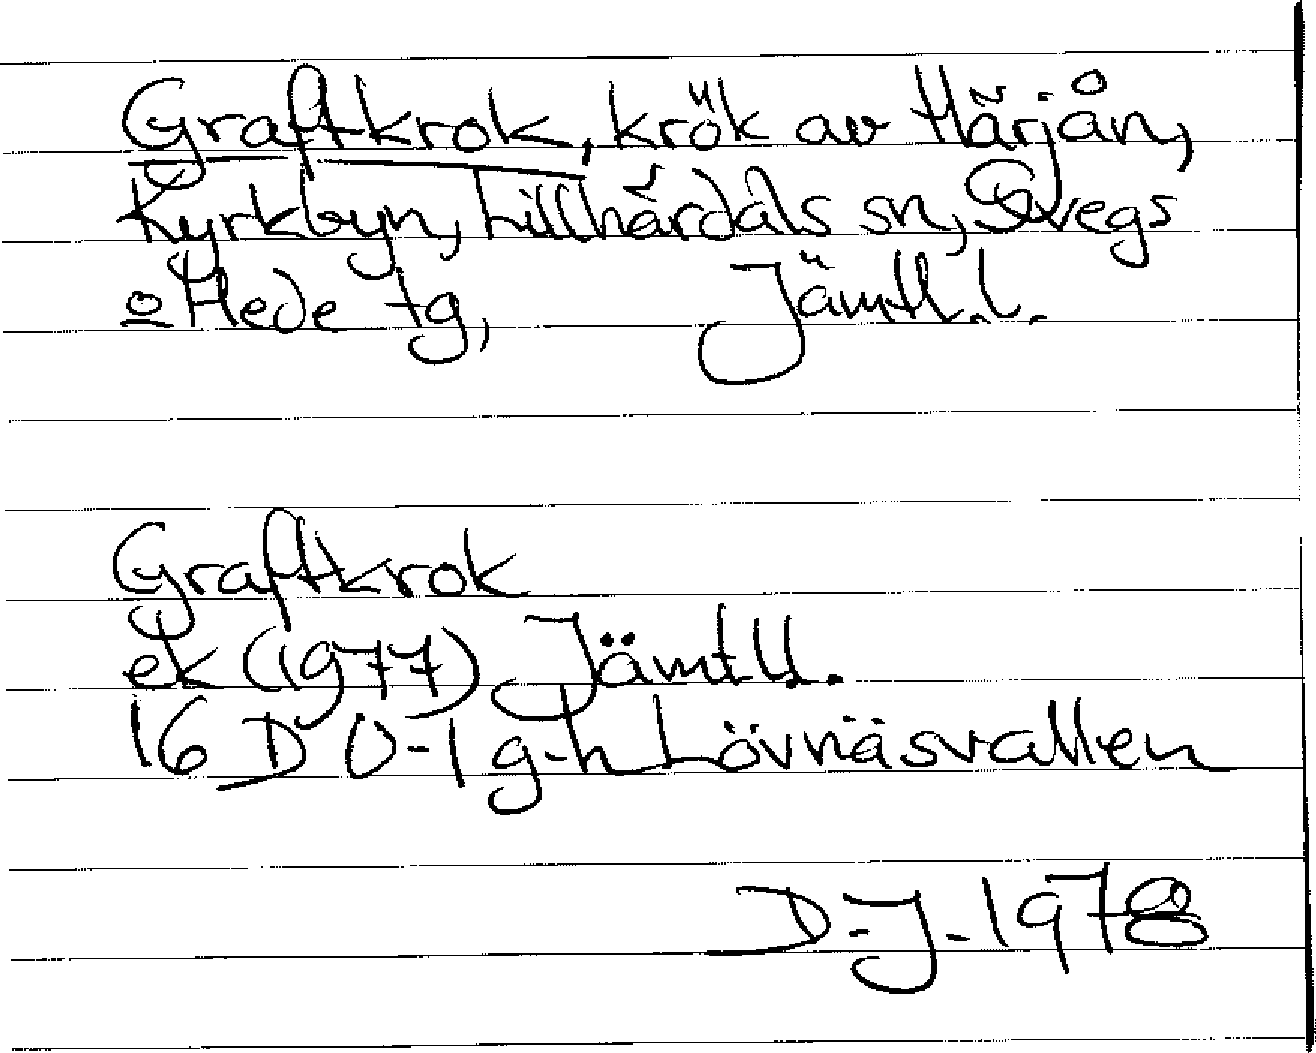 Graftkrok, krök av Härjån,
Kyrkbyn, Lillhärdals sn, Svegs
o Hede tg, Jämtl.l.
Graftkrok
ek (1977) Jämtll.
16 D 0-1 g-h Lövnäsvallen
D.J. 1978